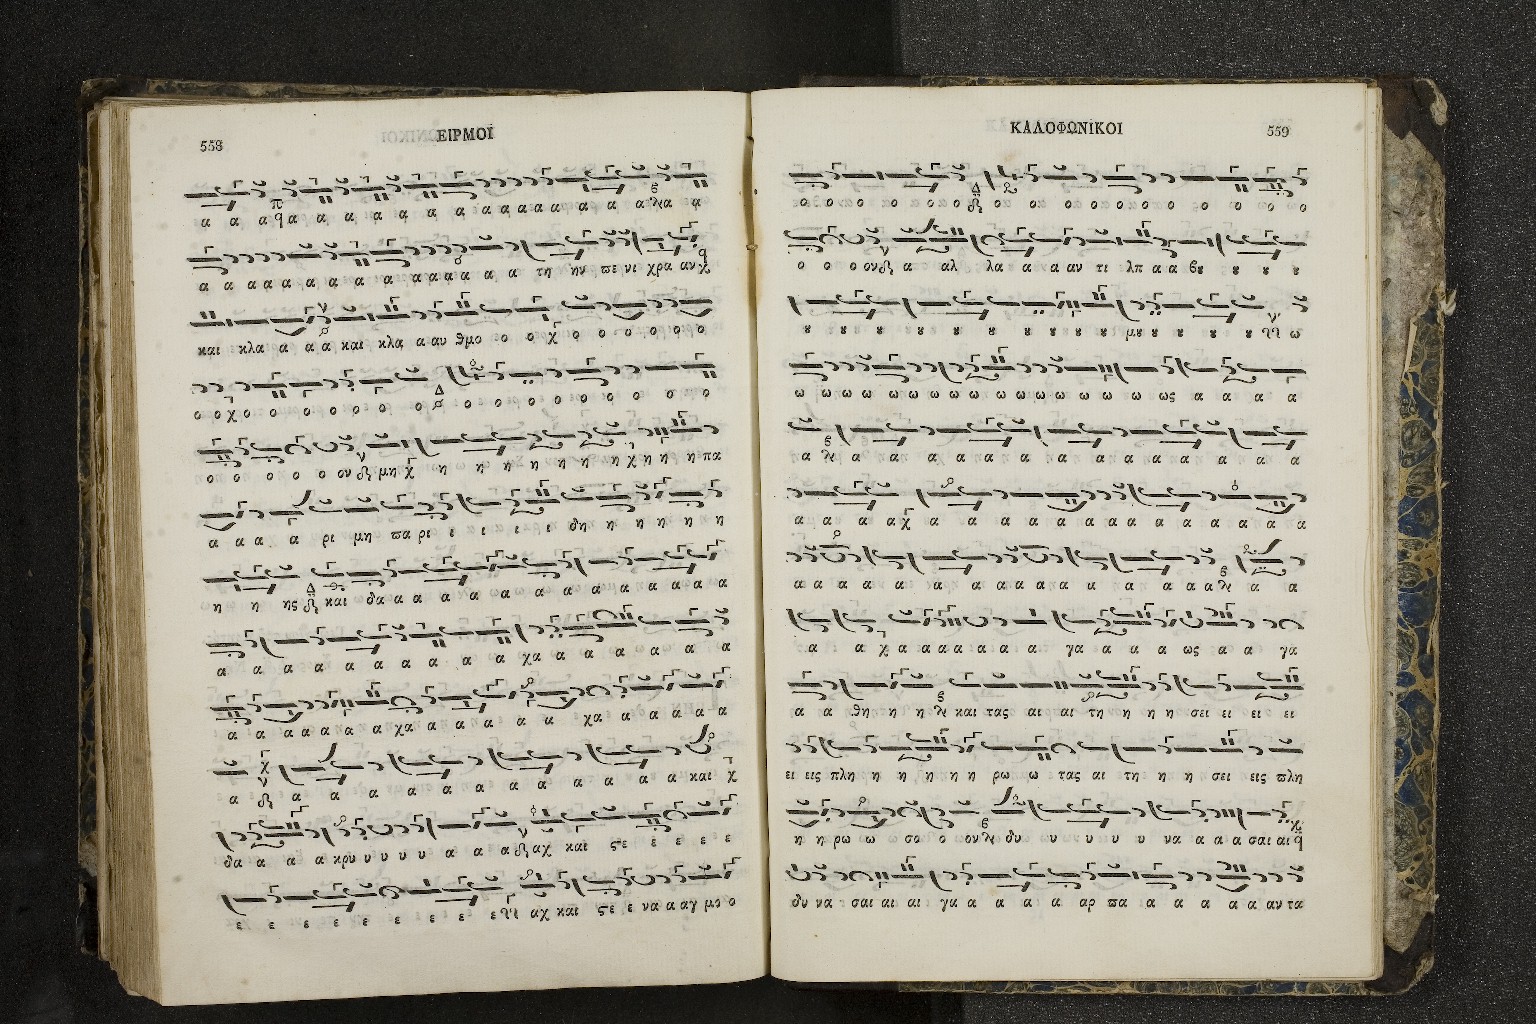 558 ΕΙΡΜΟΙ
α α α α α α α α α α α α α α α α α α α α α
α α α α α α α α α α α α α α τη ην πε νι χρα αν
και κλα α α α και κλα α αυ θμο ο ο ο ο ο ο ο ο
ο ο ο ο ο ο ο ο ο ο ο ο ο ο ο ο ο ο ο
ο ο ο ο ο ον μη η η η η η η η η η η πα
α α α α ρι μη πα ρι ι ι ι ι δη η η η η η
η η ης και δα α α α α α α α α α α α α α
α α α α α α α α α χα α α α α α α
α α α α α α χα α α α α α χα α α α α α
α α α α α α α α α α α α και
δα α α α κρυ υ υ υ υ α α α αχ και ϛε ε ε ε ε
ε ε ε ε ε ε ε ε ε αχ και ϛε ε να α αγ μο ο
ΚΑΛΟΦΩΝΙΚΟΙ 559
ο ο ο ο ο ο ο ο ο ο ο ο ο ο ο ο ο ο ο
ο ο ο ον α αλ λα α α αν τι λπ α α βȣ ȣ ȣ ȣ
ȣ ȣ ȣ ȣ ȣ ȣ ȣ ȣ ȣ ȣ ȣ μȣ ȣ ȣ ȣ ȣ ω
ω ω ω ω ω ω ω ω ω ω ω ω ω ω ω ως α α α α
α α α α α α α α α α α α α α α
α α α α α α α α α α α α α α α α α α
α α α α α α α α α α α α α α α α α α
α α α α α α α α α γα α α α ως α α γα
α α θη η η και τας αι αι τη η η η σει ει ει ει
ει εις πλη η η η η η ρω ω τας αι τη η η σει εις πλη
η η ρω ω σο ο ον δυ υ υ υ υ υ να α α α σαι αι
δυ να σαι αι αι γα α α α α αρ πα α α α α α αν τα